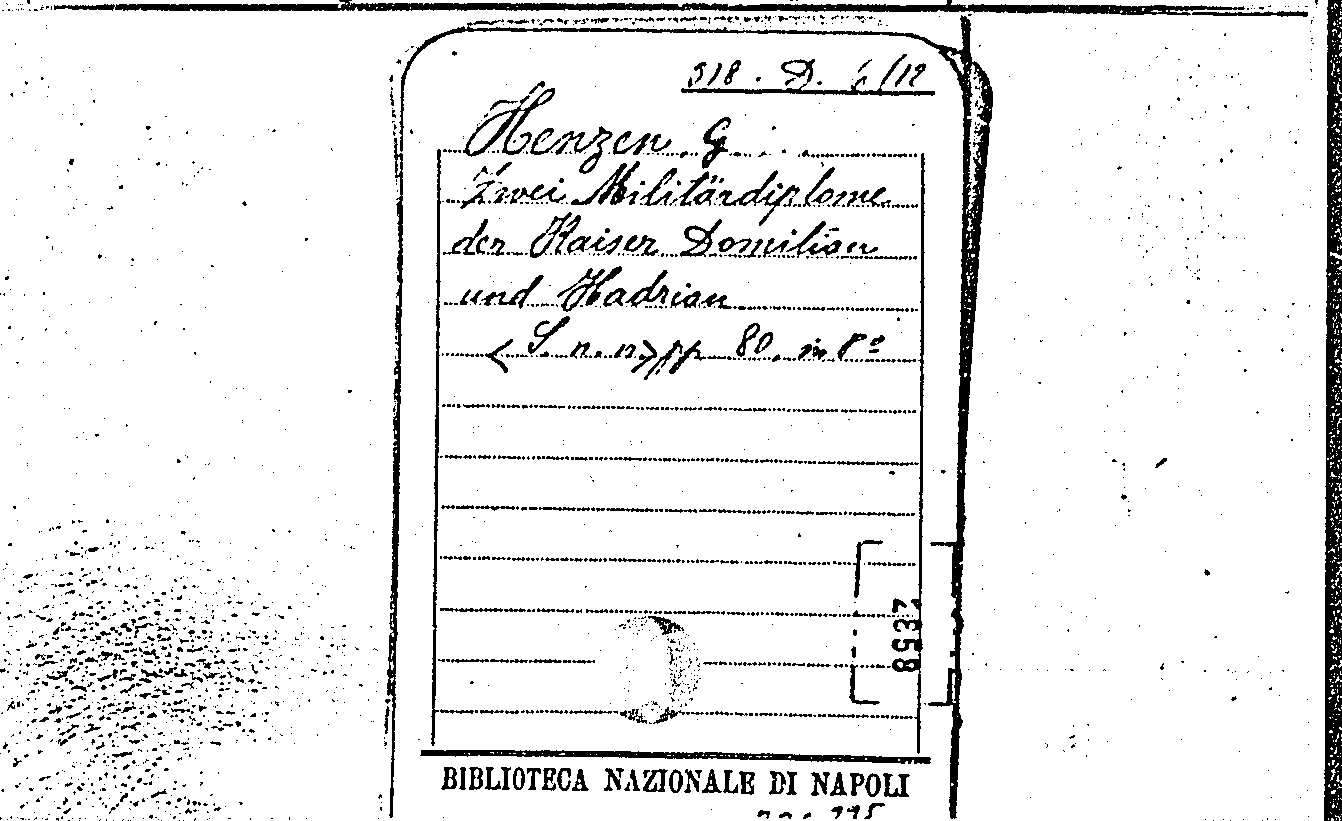 518. D. 6/12
Henzen G.
Zwei Militärdiplome
der Kaiser Domitian
und Hadrian
<S. n. n> pp 80. in 8º
2358
BIBLIOTECA NAZIONALE DI NAPOLI